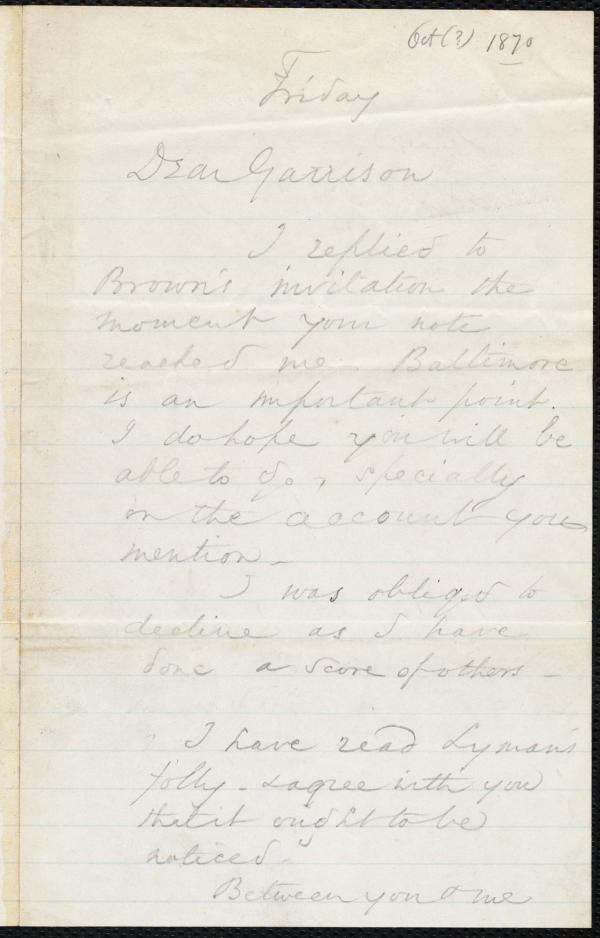 Oct (?) 1870
Friday
Dear Garrison
I replied to
Brown's invitation the
moment your note
reached me. Baltimore
is an important point.
I do hope you will be
able to go, specially
on the account you
mention -
I was obliged to
decline as I have
done a score of others -
I have read Lyman's
folly - & agree with you
that it ought to be
noticed.
Between you & me